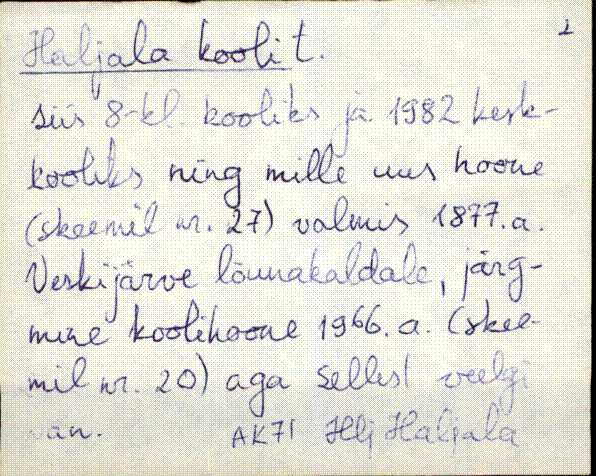 Haljala kooli t.
2
siis 8-kl. kooliks ja 1982 kesk-
kooliks ning mille uus hoone
(skeemil nr. 27) valmis 1877.a.
Veskijärve lõunakaldale, järg-
mine koolihoone 1966.a. (skee-
mil nr. 20) aga sellest veelgi
AK71 Hlj Haljala